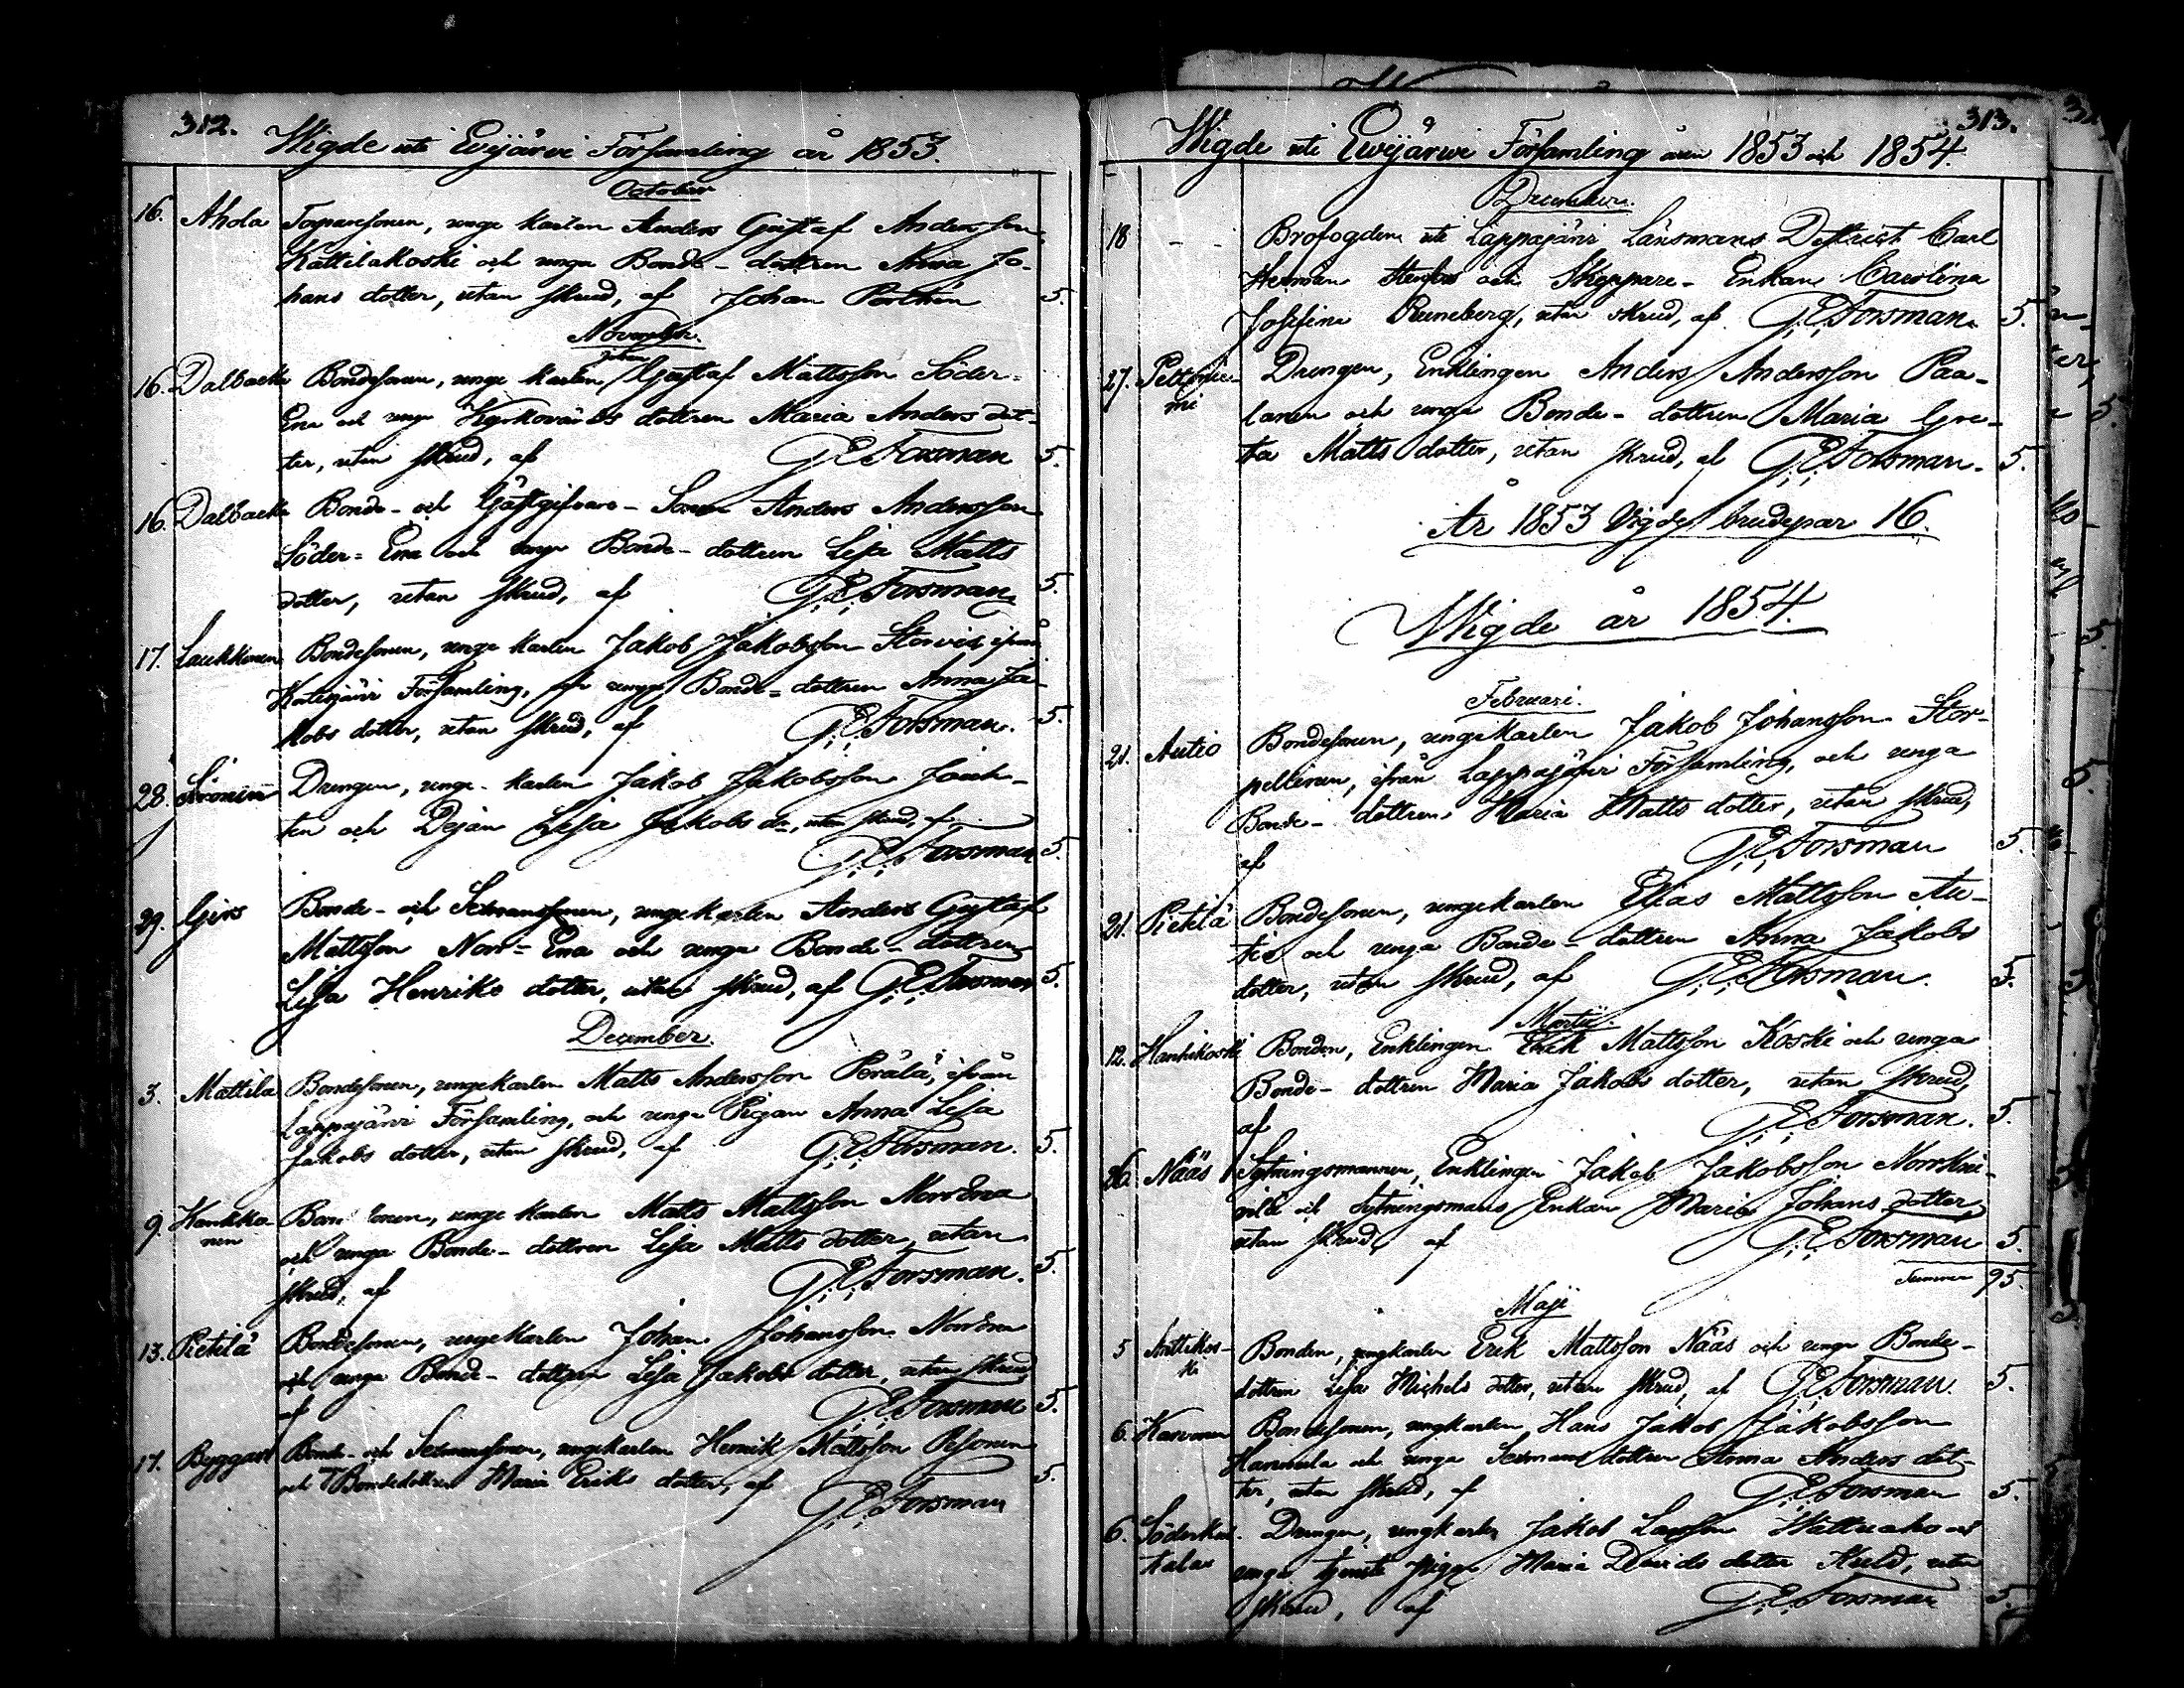 312.
Wigde uti Evijärvi Församling år 1853.
October
16. Ahola Torparesonen, unge karlen Anders Gustaf Andersson
Kattilakoski och unga Bonde-dottren Anna Jo-
hans dotter, utan skrud, af Johan Porthin 5.
November.
Johan
16. Dalbacka Bondesonen, unge karlen Gustaf Mattsson Söder-
Ena och unga Kyrkovärds dottren Maria Anders dot-
ter, utan skrud, af G. E. Forsman 5.
16. Dalbacka Bonde- och Gästgifvare-Sonen Anders Andersson
Söder-Ena och unga Bonde-dottren Lisa Matts
dotter, utan skrud, af G. E. Forsman 5.
17. Laukkonen Bondesonen, unge karlen Jakob Jakobsson Storvis ifrån
Kortesjärvi Församling, och unga Bonde-dottren Anna Ja-
kobs dotter, utan skrud, af G. E. Forsman. 5.
28. Drengen, unge karlen Jakob Jakobsson
ten och Pigan Lisa Jakobs dr, utan skrud, af
G. E. Forsman 5.
29. Girs Bonde- och Sexmanssonen, unge karlen Anders Gustaf
Mattsson Norr-Ena och unga Bonde-dottren
Lisa Henriks dotter, utan skrud, af G. E. Forsman 5.
December.
3. Mattila Bondesonen, unge karlen Matts Andersson Perälä, ifrån
Lappajärvi Församling, och unga Pigan Anna Lisa
Jakobs dotter, utan skrud, af G. E. Forsman. 5.
9. Kankko- Bondesonen, unge karlen Matts Mattsson Norrena
nen och unga Bonde-dottren Lisa Matts dotter, utan
skrud, af G. E. Forsman. 5.
13. Pietilä Bondesonen, unge karlen Johan Johansson Norrena
och unga Bonde-dottren Lisa Jakobs dotter, utan skrud,
af G. E. Forsman 5.
17. Byggar Bonde- och Sexmanssonen, unge karlen Henrik Mattsson Pesonen
och Bondedottren Maria Eriks dotter, af 5.
G. E. Forsman
313.
Wigde uti Ewijärwi Församling åren 1853 och 1854.
December.
18 - - Brofogden uti Lappajärvi Länsmans District Carl
Herman och Skeppare-Enkan Carolina
Josefina Runeberg, utan skrud, af G. E. Forsman 5.
27. Drengen, Enklingen Anders Andersson Paa-
mi lanen och unga Bonde-dottren Maria Gre-
ta Matts dotter, utan skrud, af G. E. Forsman. 5.
År 1853 Vigde brudepar 16.
Wigde år 1854.
Februari.
21. Autio Bondesonen, unge karlen Jakob Johansson Stor-
pellinen, ifrån Lappajärvi Församling, och unga
Bonde-dottren Maria Matts dotter, utan skrud,
af G. E. Forsman 5.
21. Pietilä Bondesonen, unge karlen Elias Mattsson Au-
tio och unga Bonde-dottren Anna Jakobs
dotter, utan skrud, af G. E. Forsman. 5.
Martii.
12. Hanhikoski Bonden, Enklingen Erik Mattsson Koski och unga
Bonde-dottren Maria Jakobs dotter, utan skrud,
af G. E. Forsman. 5.
26. Nääs Sytningsmannen, Enklingen Jakob Jakobsson Norrkni-
vilä och Sytningsmans Enkan Maria Johans dotter,
utan skrud, af G. E. Forsman 5.
Summa 95.
Maji
5 Anttikos- Bonden, ungkarlen Erik Mattsson Nääs och unga Bonde-
ki dottren Lisa Michels dotter, utan skrud, af G. E. Forsman. 5.
6. Karvonen Bondesonen, ungkarlen Hans Jakob Jakobsson
Hannula och unga Sexmans dottren Anna Anders dot-
ter, utan skrud, af G. E. Forsman 5.
6. Drengen, ungkarlen Jakob Larsson Wattuaho och
unga tjenste pigan Maria Davids dotter Kuld, utan
skrud, af G. E. Forsman 5.